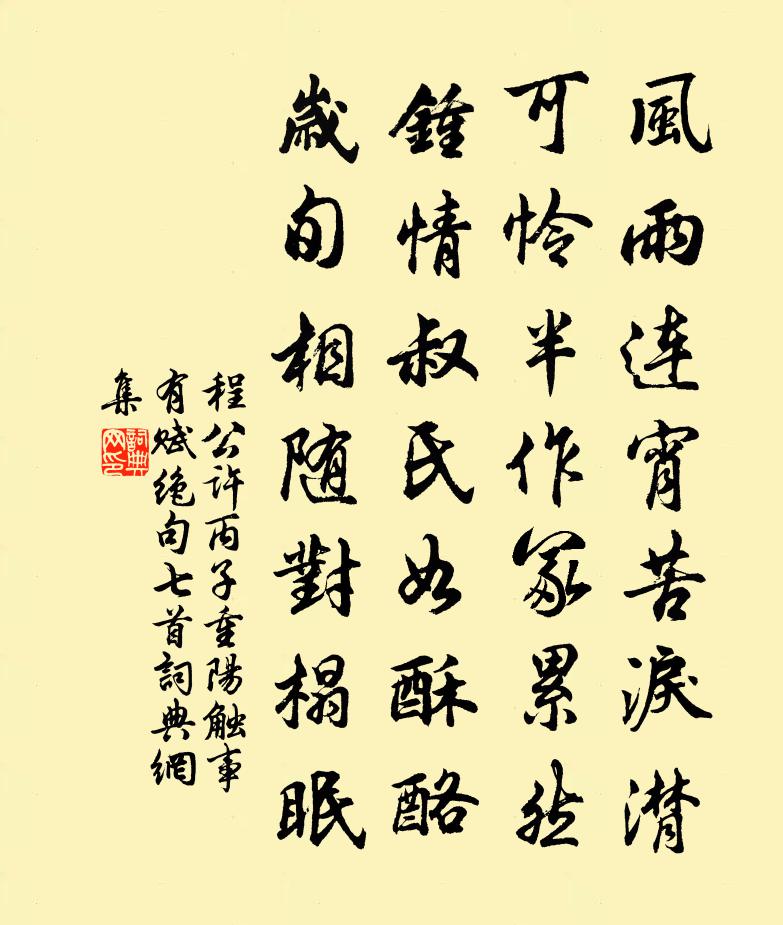 風雨連宵苦淚潸
可怜半作冢累然
鍾情叔氏如酥酪
歲旬相随對榻眠
程公许丙子重陽触事
有赋绝句七首詞典網
集
詞典
网印